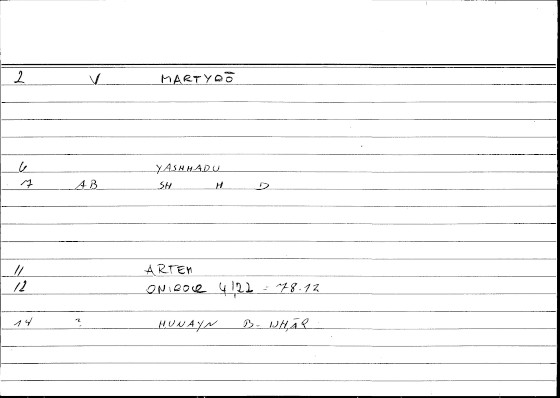 2 V MARTYRŌ
6 YASHHADU
7 AB SH H D
11 ARTEM
12 ONIROCR 4,22 = 78.12
14 ? HUNAYN B- NHĀR